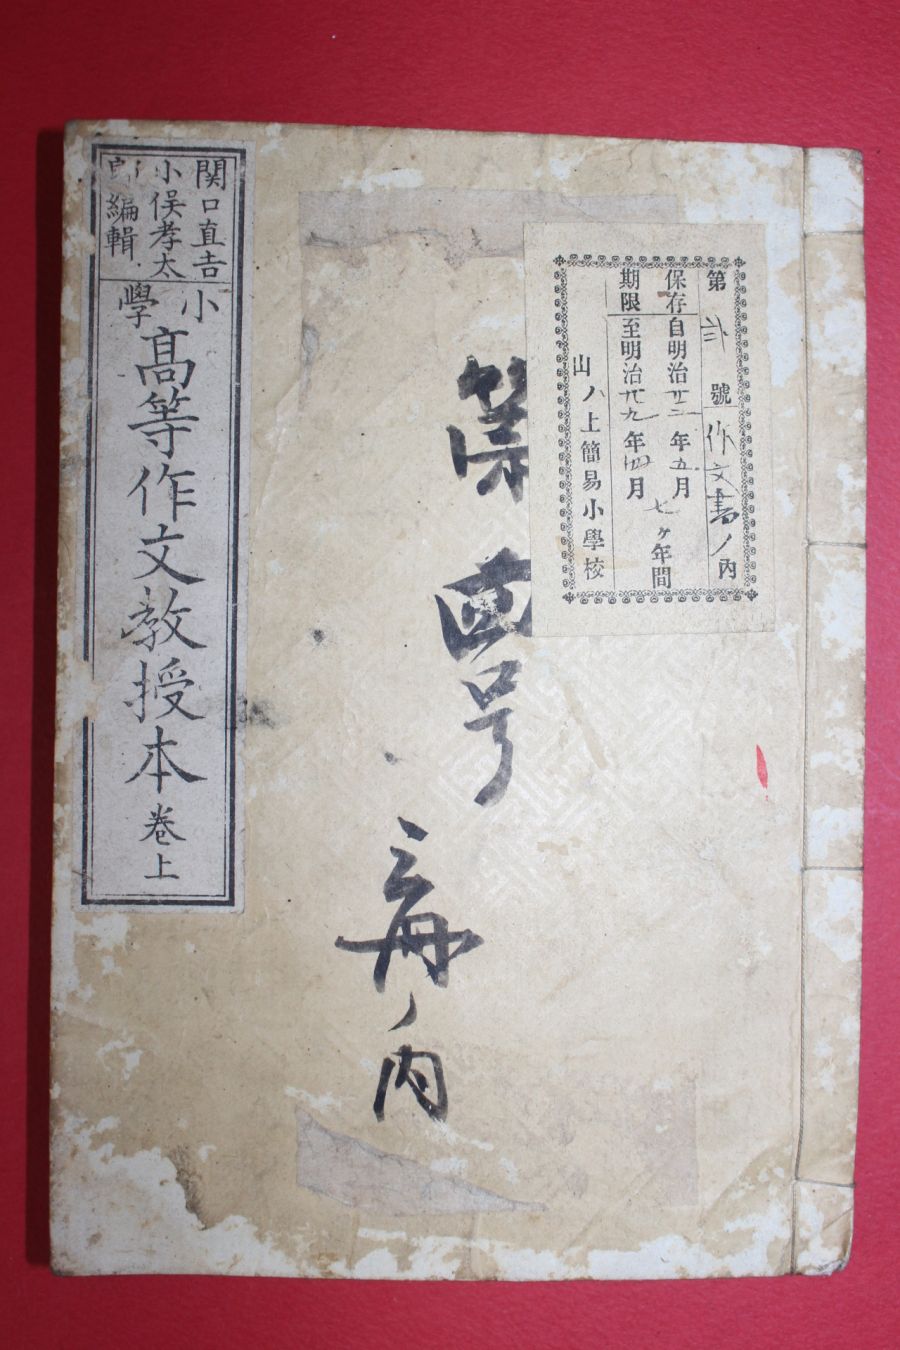 第 弐 號 作文書ノ内
保存 自明治廿二年五月
期限 至明治廿九年四月
七ヶ年間
山ノ上簡易小學校
第四号
三册ノ内
関口直吉
小俣孝太
郎編輯
小學
高等作文教授本 巻上